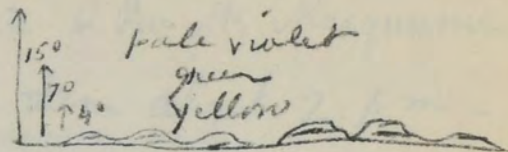 15° pale violet
7° green
4° yellow